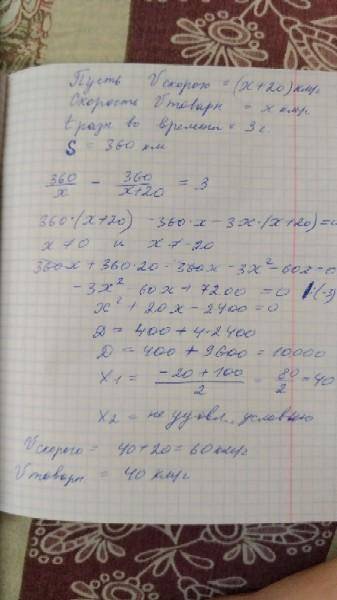 Пусть Vскорого = (x+20) км/ч
Скорость Vтоварн = x км/ч
t разн во времени = 3 ч
S = 360 км
360/x - 360/x+20 = 3
360·(x+20) - 360·x - 3x·(x+20)=0
x ≠ 0 и x ≠ -20
360x + 360·20 - 360x - 3x² - 60x = 0
-3x² - 60x + 7200 = 0 |:(-3)
x² + 20x - 2400 = 0
D = 400 + 4·2400
D = 400 + 9600 = 10000
X₁ = -20 + 100/2 = 80/2 = 40
X₂ = не удовл. условию
Vскорого = 40+20 = 60 км/ч
Vтоварн = 40 км/ч